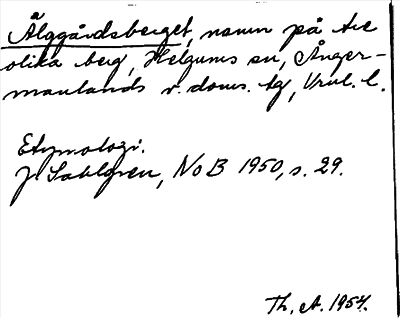 Älggårdsberget, namn på tre
olika berg, Helgums sn, Ånger-
manlands v. doms. tg, Vnrl. l.
Etymologi.
J. Sahlgren, NoB 1950, s. 29.
Th. A. 1954.